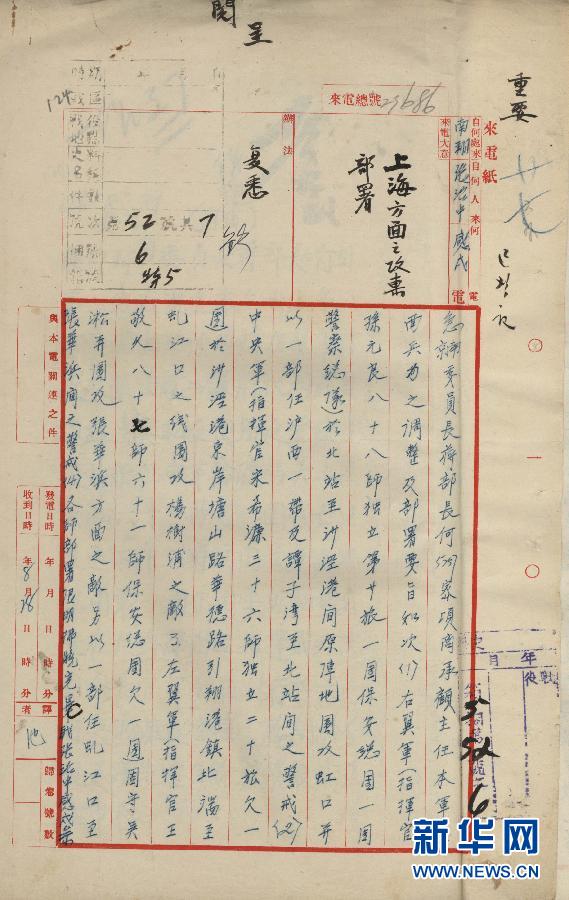 閱
呈
重要
來電紙
自何處來自何人來何電
南翔張治中感戌
來電大意
上海方面之攻擊
部署
來電總號
23686
辦法
复悉
124
52
7
6
急
委員長蔣部長何(529)密項奉顧主任本軍
兵力之調整及部署要旨如次(1)右翼軍(指揮官
孫元良八十八師獨立第廿旅一團保安總團一團
警察總隊)於北站至沙涇港間原陣地圍攻虹口并
以一部任沪西一帶及譚子湾至北站間之警戒(2)
中央軍(指揮官宋希濂三十六師獨立二十旅欠一
團)於沙涇港東岸塘山路華德路引翔港鎮北端至
虬江口之线圍攻楊樹浦之敵(3)左翼軍(指揮官王
敬久八十七師六十一師保安总團欠一團)固守吳
淞并圍攻張華浜方面之敵另以一部任虬江口至
張華浜間之警戒(4)各師部署限明拂曉完畢職張治中感戌
與本電關連之件
發電日時
年月日時分
收到日時
年8月28日時分
譯者
池
歸卷號數
年
月
5
52
6
新华网
WWW.NEWS.CN